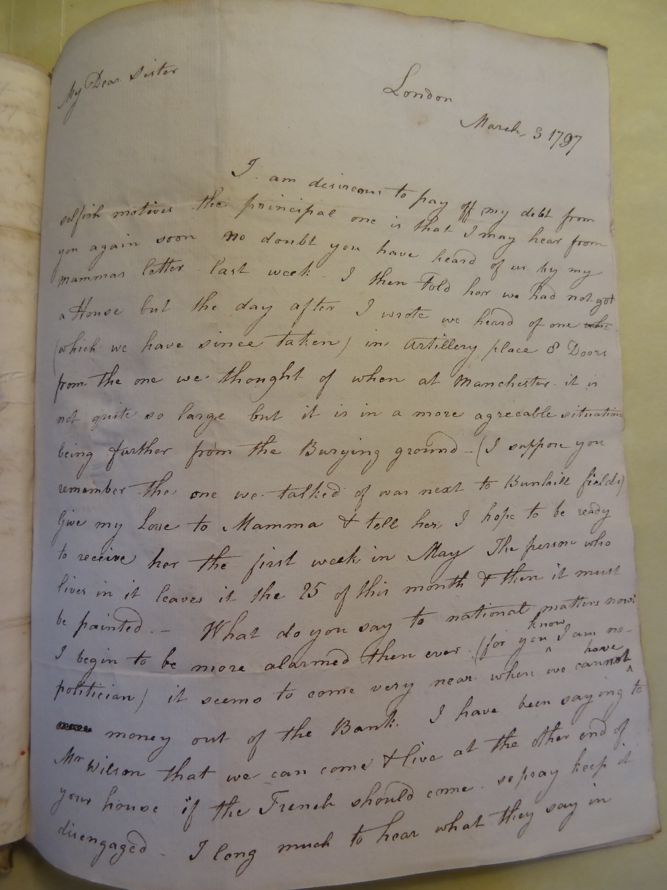 My Dear Sister
London
March 3 1797
I am desireous to pay off my debt from
selfish motives the principal one is that I may hear from
you again soon no doubt you have heard of us by my
Mammas letter last week. I then told her we had not got
a House but the day after I wrote we heard of one
(which we have since taken) in Artillery place 8 Doors
from the one we thought of when at Manchester it is
not quite so large but it is in a more agreeable situation
being farther from the Burying ground - (I suppose you
remember the one we talked of was next to Bunhill fields)
Give my Love to Mamma & tell her I hope to be ready
to receive her the first week in May The person who
lives in it leaves it the 25 of this month & then it must
be painted. - What do you say to national matters now?
I begin to be more alarmed then ever (for you know I am no
politician) it seems to come very near when we cannot have
money out of the Bank. I have been saying to
Mr Wilson that we can come & live at the other end of
your house if the French should come. so pray keep it
disengaged. I long much to hear what they say in